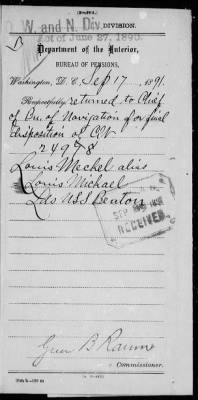 O. W. and N. Div. DIVISION.
Act of June 27, 1890.
Department of the Interior,
BUREAU OF PENSIONS,
Washington, D. C., Sep 17, 1891
Respectfully returned to Chief
of Bu. of Navigation for final
disposition of
24978
Louis Meckel alias
Louis Michael
Lds U.S.S. Benton
SEP
RECEIVED
Green B Raum
Commissioner.